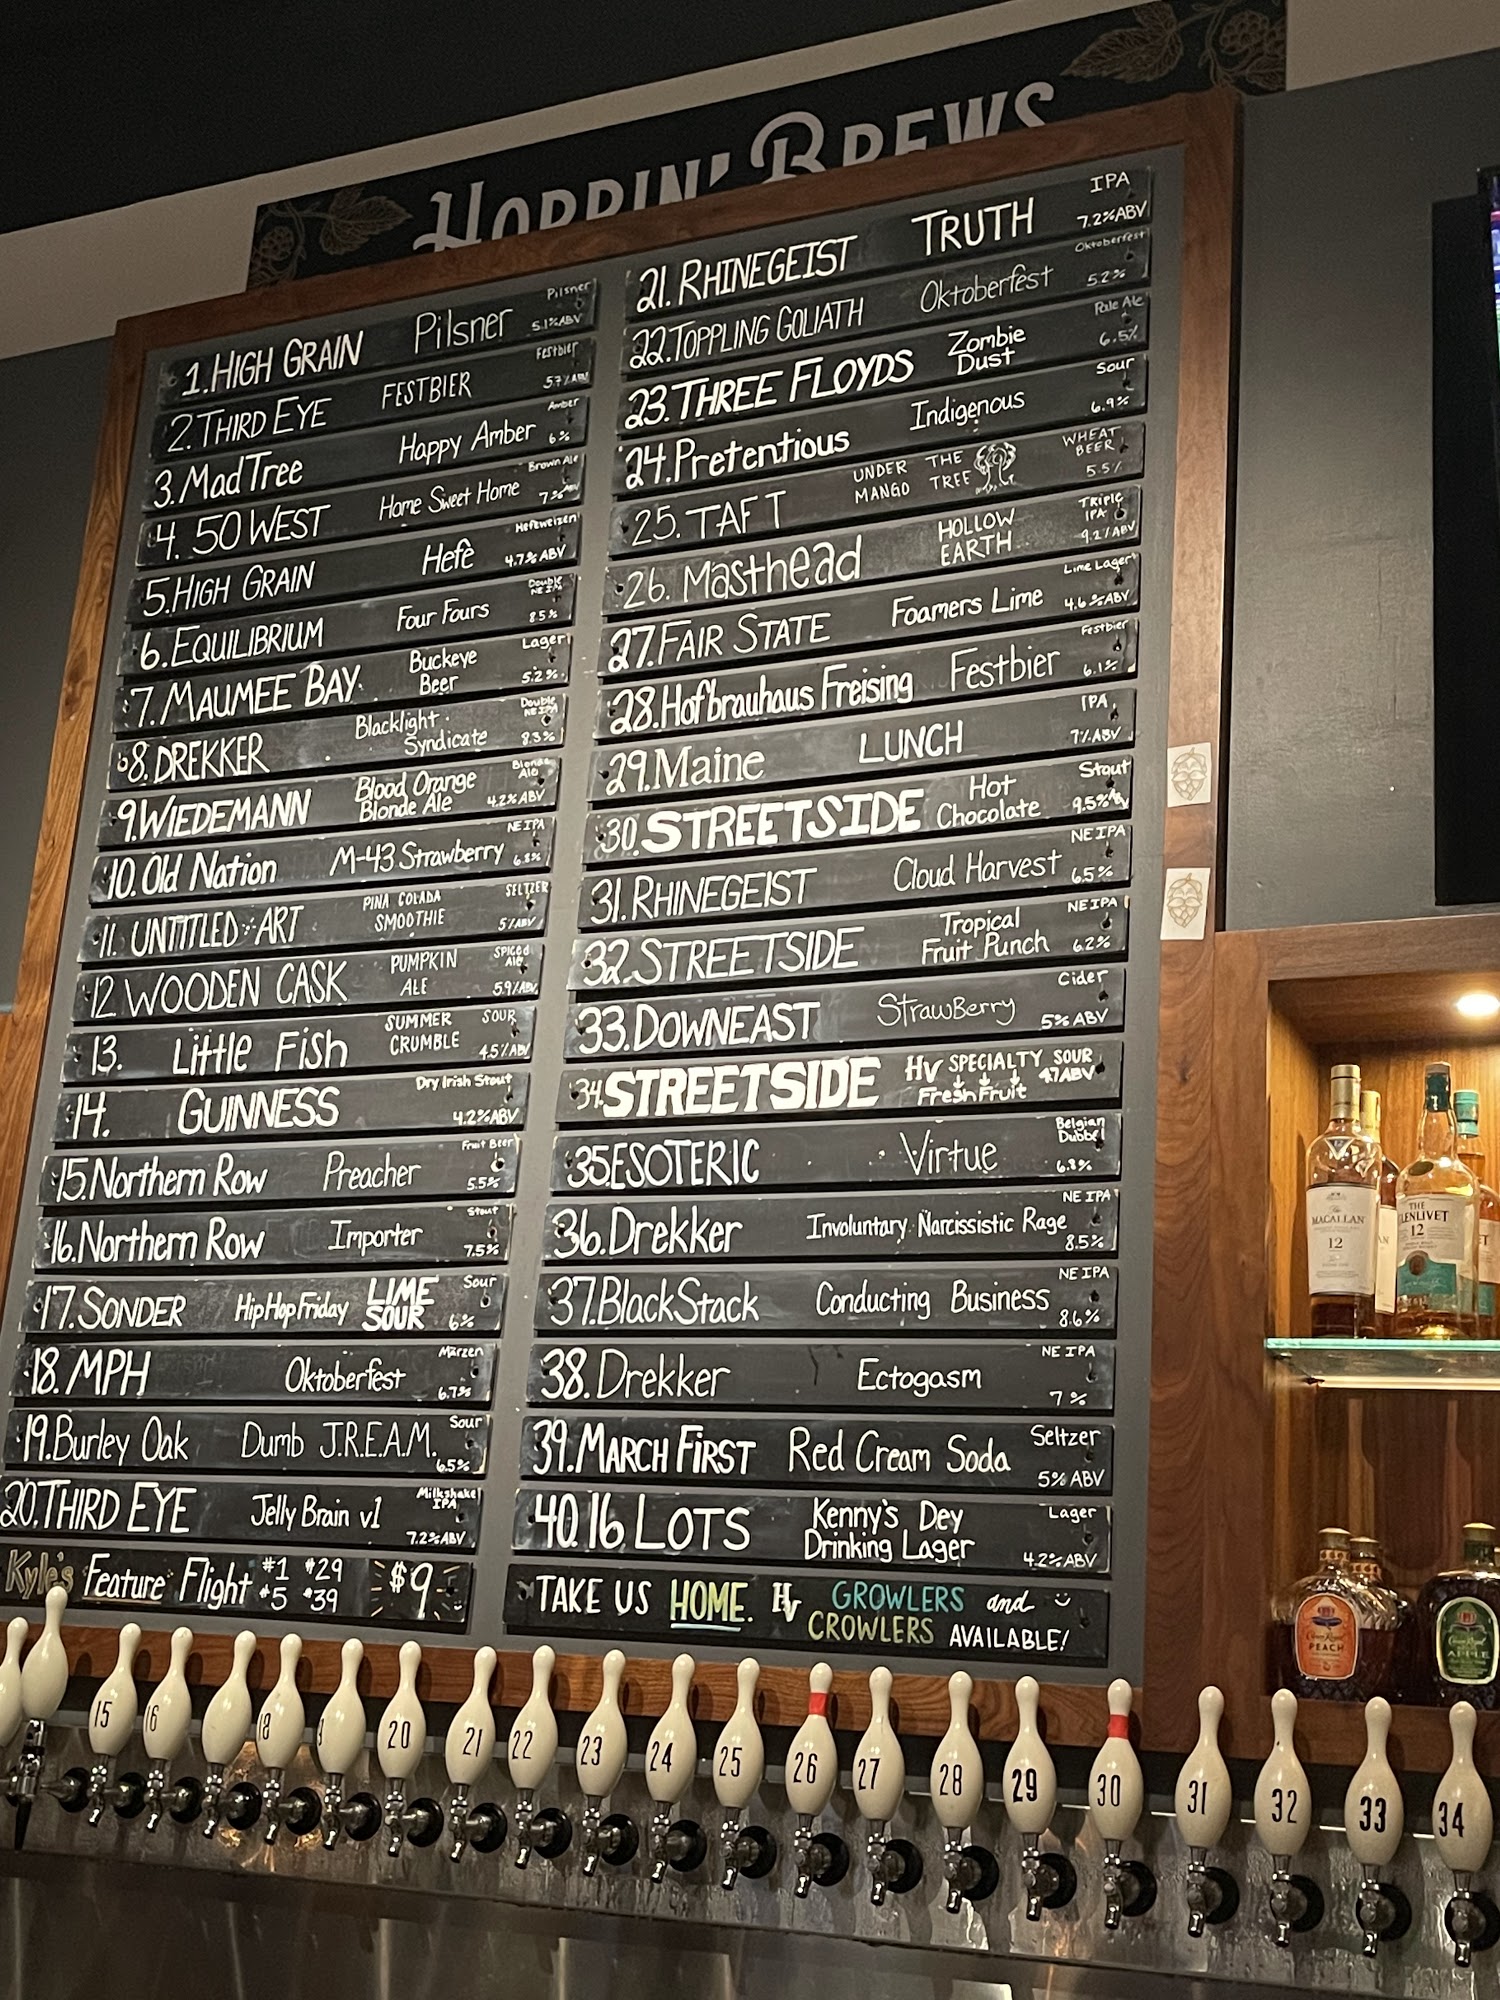 HOPPIN' BREWS
1. HIGH GRAIN Pilsner Pilsner 5.1% ABV
2. THIRD EYE FESTBIER Festbier 5.7% ABV
3. MadTree Happy Amber Amber 6%
4. 50 WEST Home Sweet Home Brown Ale 7% ABV
5. HIGH GRAIN Hefe Hefeweizen 4.7% ABV
6. EQUILIBRIUM Four Fours Double NE IPA 8.5%
7. MAUMEE BAY Buckeye Beer Lager 5.2%
8. DREKKER Blacklight Syndicate Double NE IPA 8.3%
9. WIEDEMANN Blood Orange Blonde Ale Blonde Ale 4.2% ABV
10. Old Nation M-43 Strawberry NE IPA 6.8%
11. UNTITLED ART PINA COLADA SMOOTHIE SELTZER 5% ABV
12. WOODEN CASK PUMPKIN ALE SPICED Ale 5.9% ABV
13. Little Fish SUMMER CRUMBLE SOUR 4.5% ABV
14. GUINNESS Dry Irish Stout 4.2% ABV
15. Northern Row Preacher Fruit Beer 5.5%
16. Northern Row Importer Stout 7.5%
17. SONDER HipHopFriday LIME SOUR Sour 6%
18. MPH Oktoberfest Märzen 6.7%
19. Burley Oak Dumb J.R.E.A.M. Sour 6.5%
20. THIRD EYE Jelly Brain v1 Milkshake IPA 7.2% ABV
Kyle's Feature Flight #1 #29 #5 #39 $9
21. RHINEGEIST TRUTH IPA 7.2% ABV
22. TOPPLING GOLIATH Oktoberfest Oktoberfest 5.2%
23. THREE FLOYDS Zombie Dust Pale Ale 6.5%
24. Pretentious Indigenous Sour 6.9%
25. TAFT UNDER THE MANGO TREE WHEAT BEER 5.5%
26. Masthead HOLLOW EARTH TRIPLE IPA 9.2% ABV
27. FAIR STATE Foamers Lime Lime Lager 4.6% ABV
28. Hofbrauhaus Freising Festbier Festbier 6.1%
29. Maine LUNCH IPA 7% ABV
30. STREETSIDE Hot Chocolate Stout 9.5% ABV
31. RHINEGEIST Cloud Harvest NE IPA 6.5%
32. STREETSIDE Tropical Fruit Punch NE IPA 6.2%
33. DOWNEAST StrawBerry Cider 5% ABV
34. STREETSIDE HV SPECIALTY Fresh Fruit SOUR 4.7 ABV
35 ESOTERIC Virtue Belgian Dubbel 6.8%
36. Drekker Involuntary Narcissistic Rage NE IPA 8.5%
37. BlackStack Conducting Business NE IPA 8.6%
38. Drekker Ectogasm NE IPA 7%
39. MARCH FIRST Red Cream Soda Seltzer 5% ABV
40. 16 LOTS Kenny's Dey Drinking Lager Lager 4.2% ABV
TAKE US HOME. HV GROWLERS and CROWLERS AVAILABLE!
THE MACALLAN 12
THE GLENLIVET 12
Crown Royal PEACH
Crown Royal APPLE
15 16 18 20 21 22 23 24 25 26 27 28 29 30 31 32 33 34